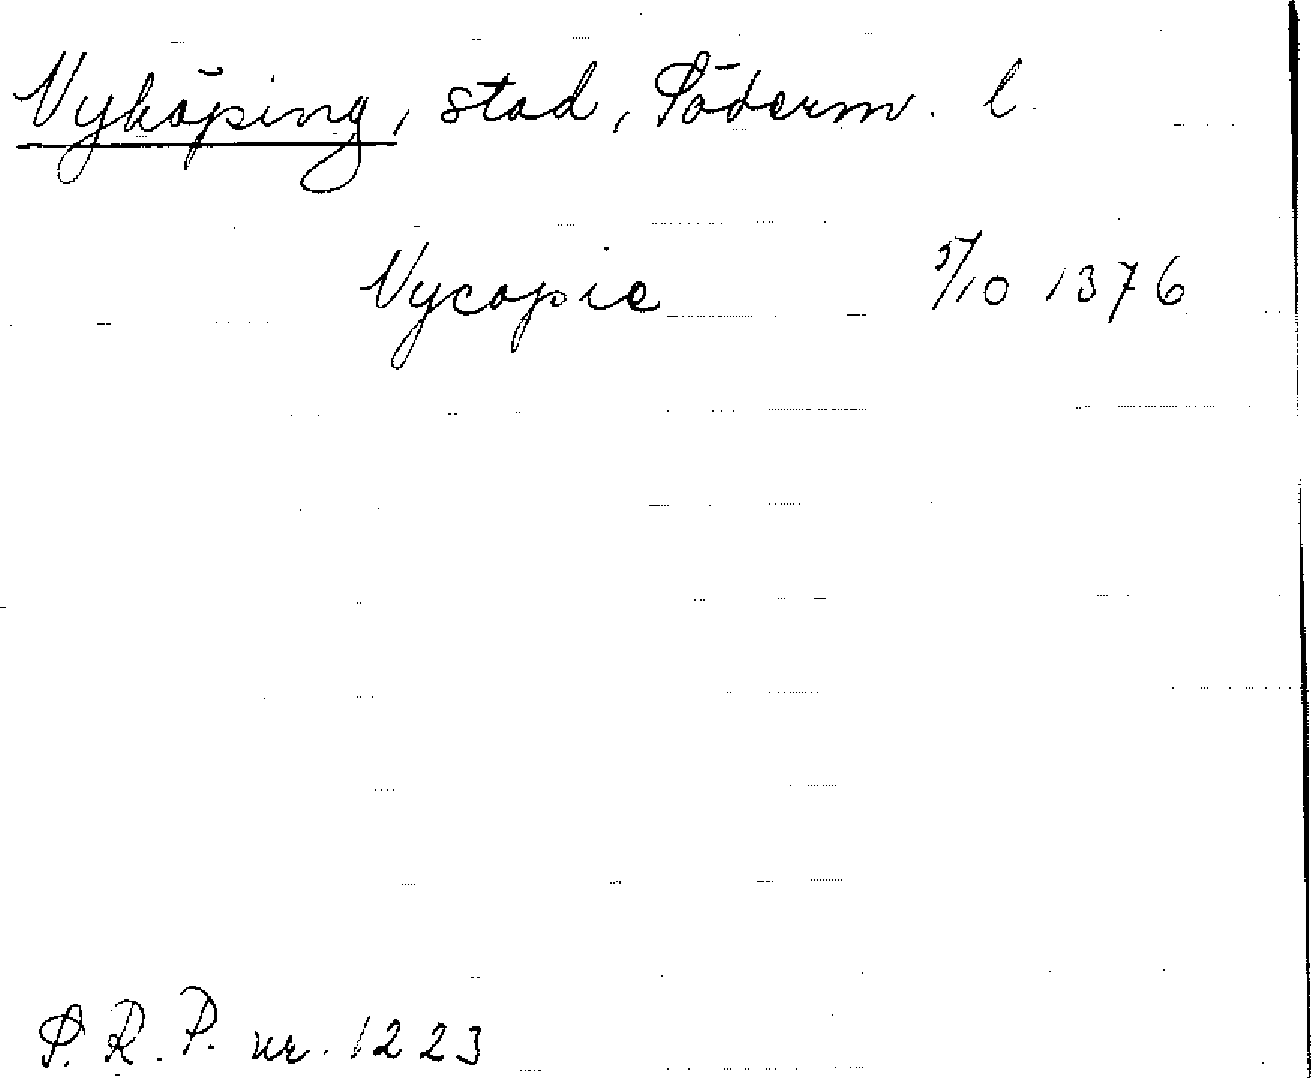 Nyköping, stad, Söderm. l.
Nycopie 5/10 1376
S.R.P. nr. 1223